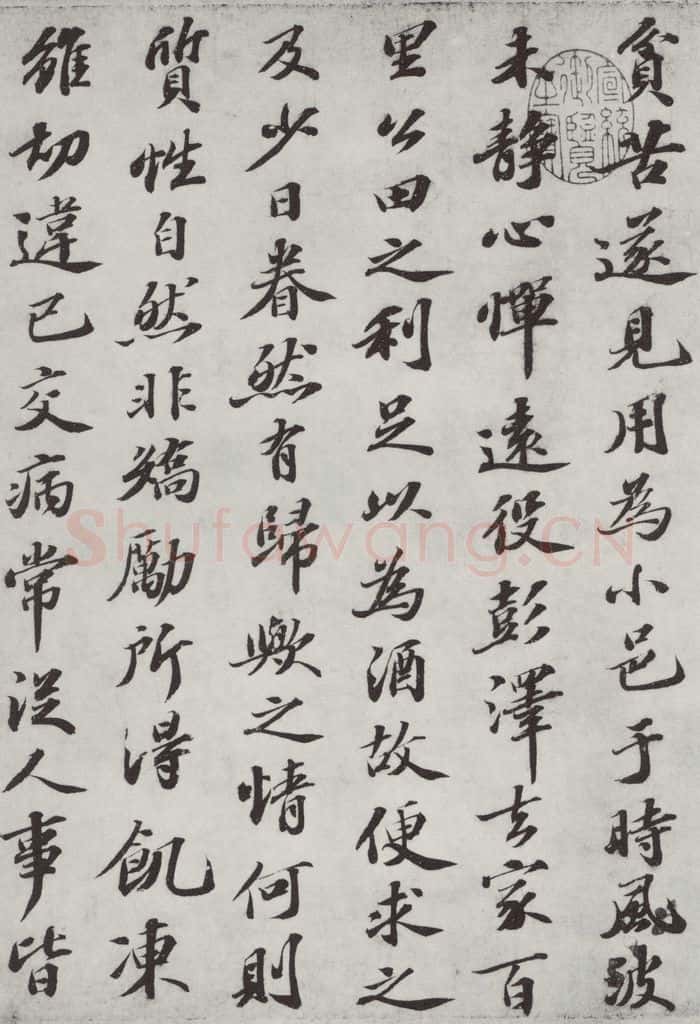 貧苦遂見用為小邑于時風波
未靜心憚遠役彭澤去家百
里公田之利足以為酒故便求之
及少日眷然有歸歟之情何則
質性自然非矯勵所得飢凍
雖切違已交病常從人事皆
宣統御覽之寶
Shufawang.CN